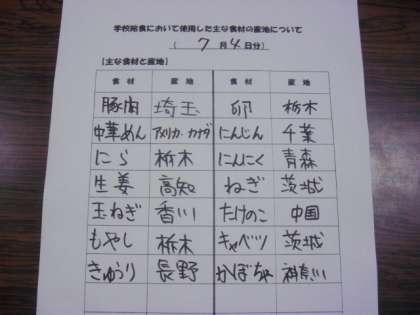 学校給食において使用した主な食材の産地について
( 7月4日分)
【主な食材と産地】
食材 産地 食材 産地
豚肉 埼玉 卵 栃木
中華めん アメリカ・カナダ にんじん 千葉
にら 栃木 にんにく 青森
生姜 高知 ねぎ 茨城
玉ねぎ 香川 たけのこ 中国
もやし 栃木 キャベツ 茨城
きゅうり 長野 かぼちゃ 神奈川